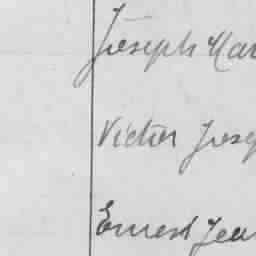 Joseph Mar
Victor Josep
Ernest Jean